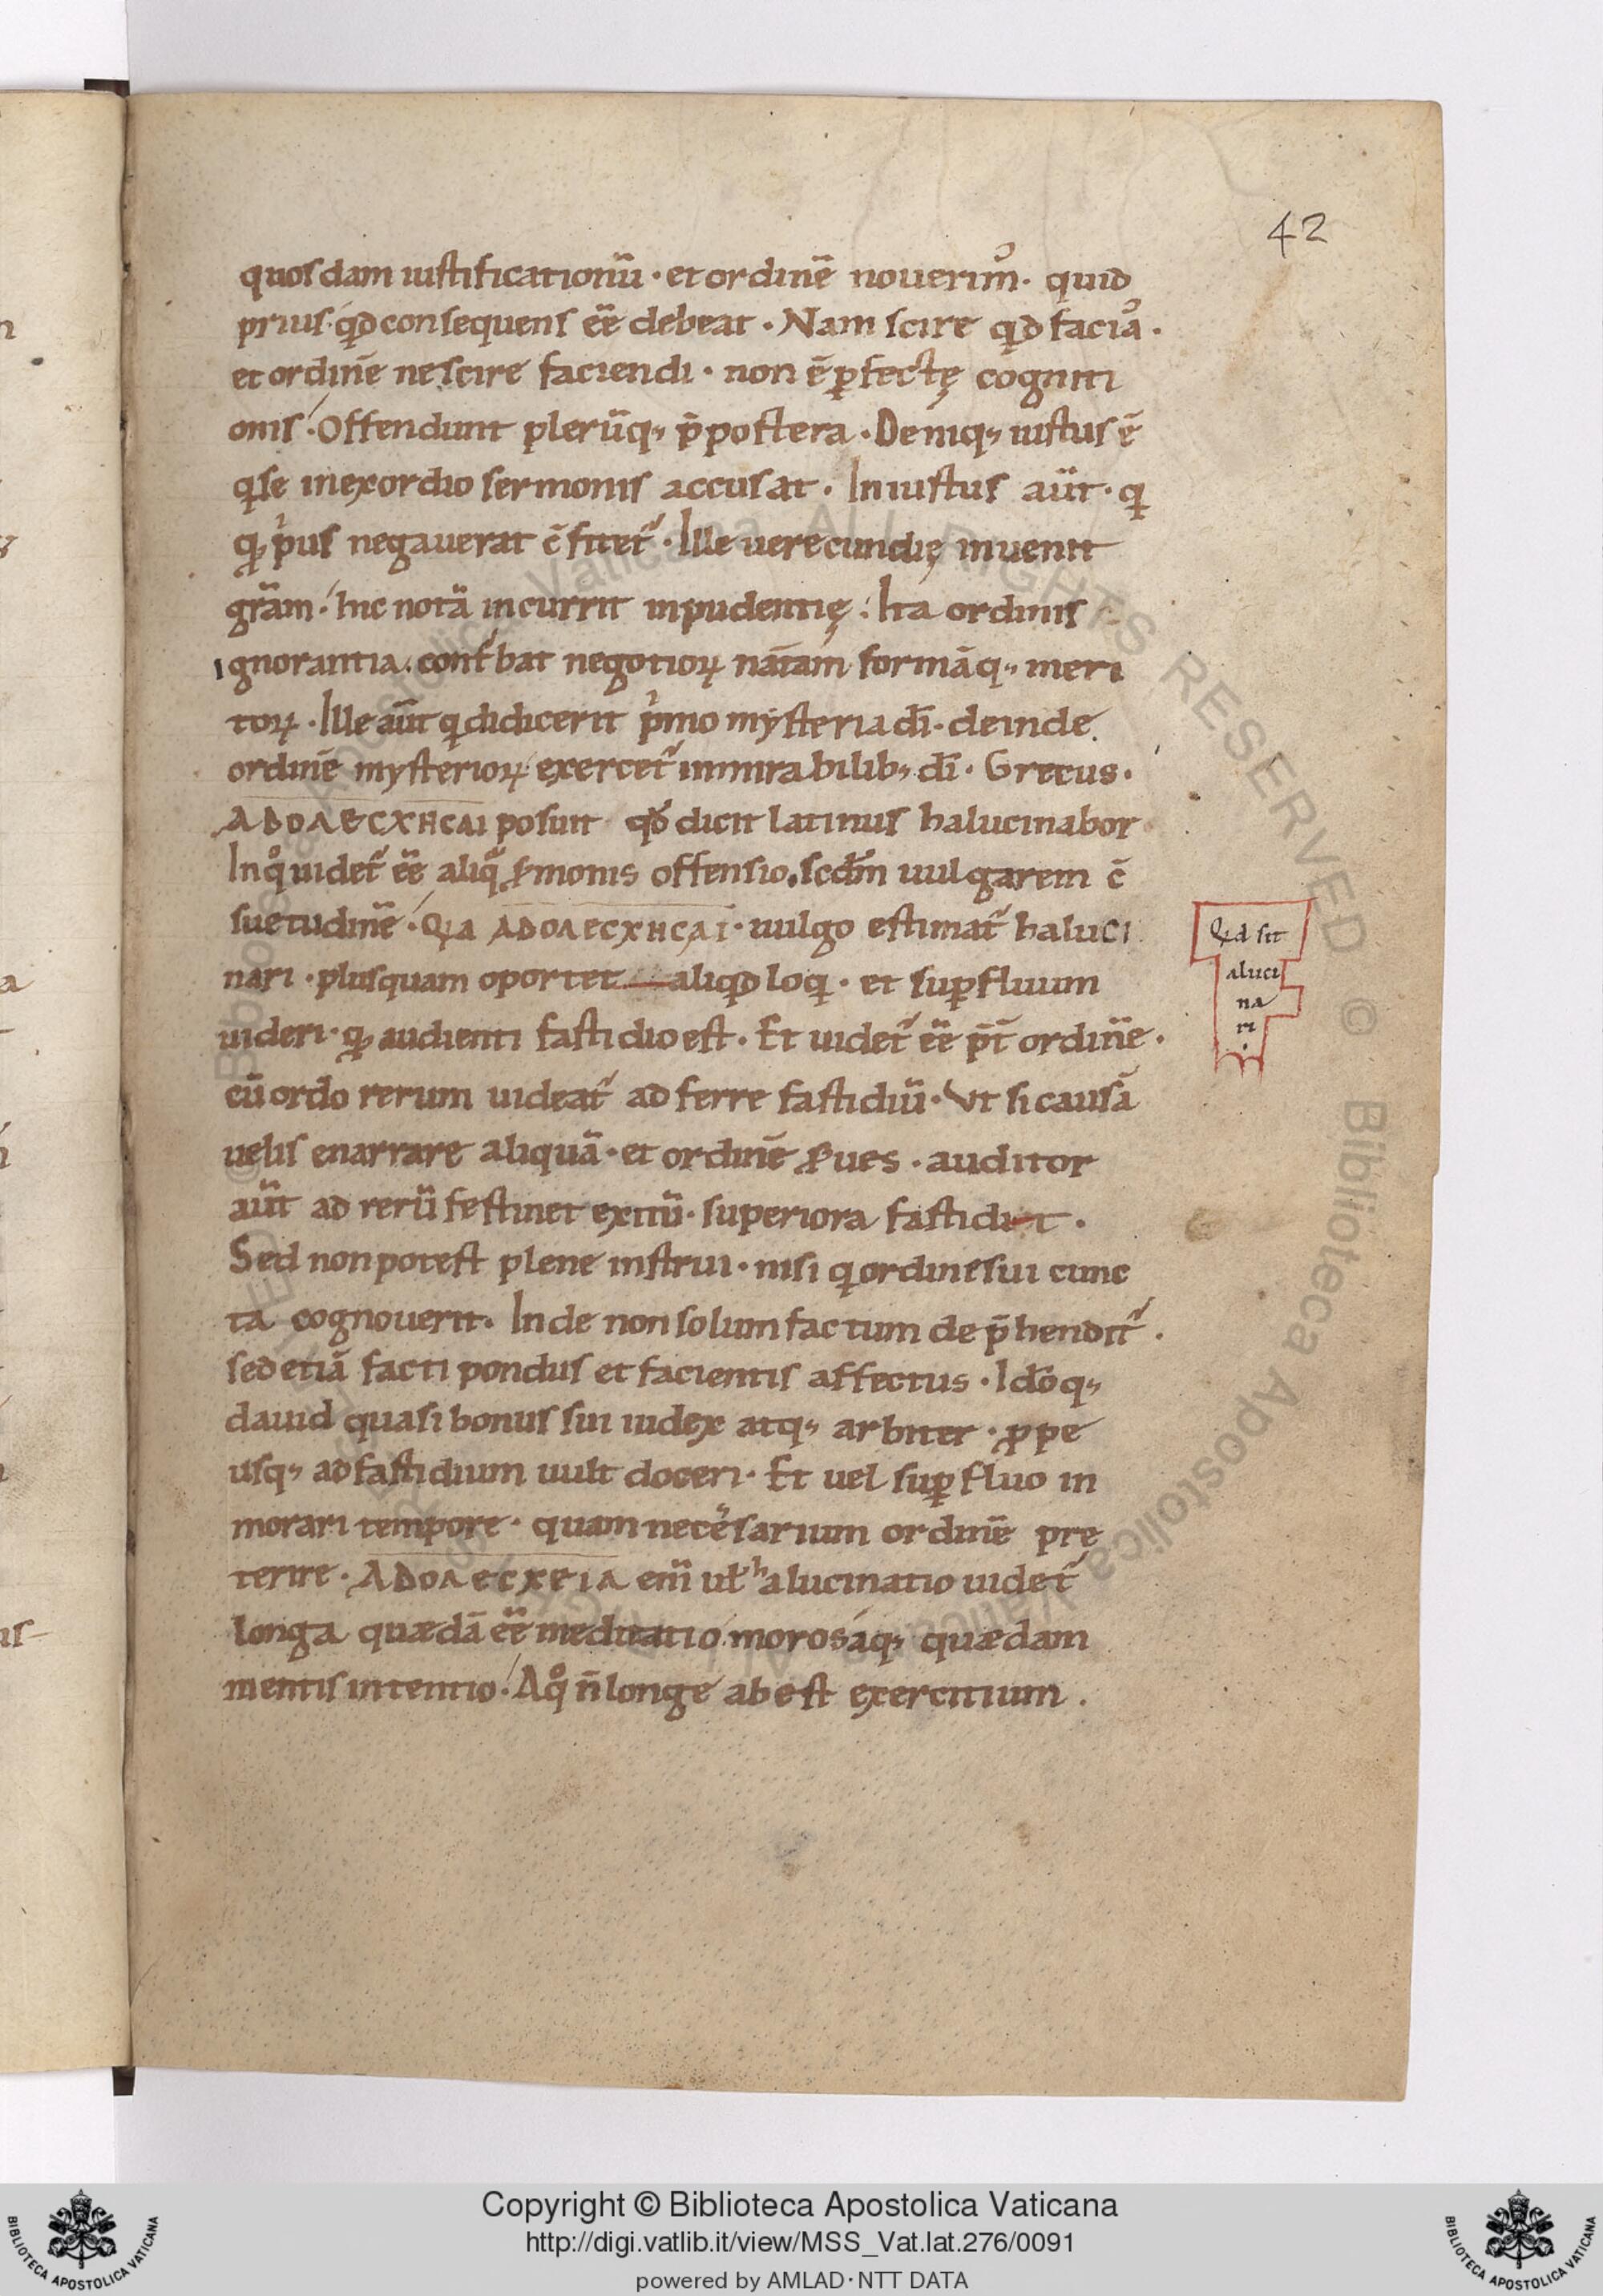 42
quosdam iustificationū · et ordinē nouerim᷒ · quid
prius · qđ consequens eē debeat · Nam scire qđ faciam᷒ ·
et ordinē nescire faciendi · non ē ꝑfectę cogniti
onis · Offendunt plerūq; p̄postera · Deniq; iustus ē
qͥ se in exordio sermonis accusat · Iniustus aūt · qͥ
qđ pͥus negauerat c̄fitet᷑ · Ille uerecundię inuenit
gr̄am · hic notā incurrit inpudentię · Ita ordinis
ignorantia · cont᷑bat negotioꝝ nat᷑am formāq; meri
toꝝ · Ille aūt qͥ didicerit pͥmo mysteria dī · deinde
ordinē mysterioꝝ exercet᷑ in mirabilib; dī · Grecus ·
ΑΔΟΛΕСΧΗСΑΙ posuit qđ dicit latinus halucinabor
In qͦ uidet᷑ eē aliqͣ s̄monis offensio · scđm uulgarem c̄
suetudinē · Qͥa ΑΔΟΛΕСΧΗСΑΙ · uulgo estimat᷑ haluci
nari · plusquam oportet aliqͥd loqͥ · et suꝑfluum
uideri · qđ audienti fastidio est · Et uidet᷑ eē p̄t̄ ordinē ·
cū ordo rerum uideat᷑ adferre fastidiū · Vt si causā
uelis enarrare aliquā · et ordinē ẜues · auditor
aūt ad rerū festinet exitū · superiora fastidit ·
Sed non potest plene instrui · nisi qͥ ordine sui cunc
ta cognouerit · Inde non solum factum dep̄hendit᷑ ·
sed etiā facti pondus et facientis affectus · Idōq;
dauid quasi bonus sui iudex atq; arbiter · ꝓpe
usq; ad fastidium uult doceri · Et uel suꝑfluo in
morari tempore · quam necēsarium ordinē pre
terire · ΑΔΟΛΕСΧΕΙΑ eni ut halucinatio uidet᷑
longa quædā eē meditatio morosaq; quædam
mentis intentio · A qͦ n̄ longe abest exercitium ·
Qͥd sit
aluci
na
ri
Copyright © Biblioteca Apostolica Vaticana
http://digi.vatlib.it/view/MSS_Vat.lat.276/0091
powered by AMLAD·NTT DATA